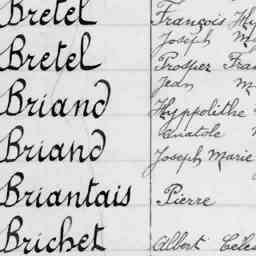 Bretel François Hy
Joseph M
Bretel Prosper Fran
Jean M
Briand Hyppolithe
Anatole
Briand Joseph Marie
Briantais Pierre
Brichet Albert Celes